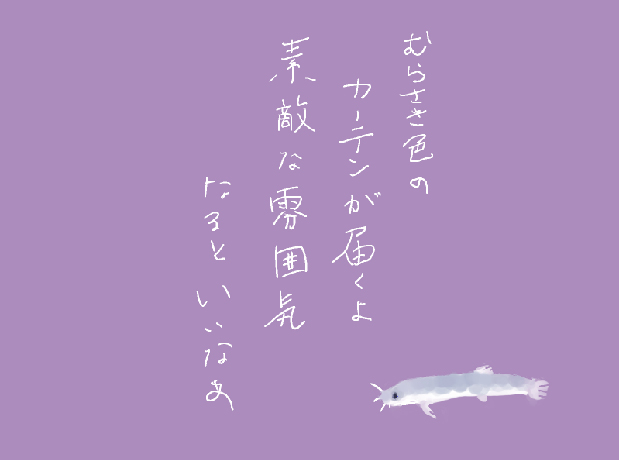 むらさき色の
カーテンが届くよ
素敵な雰囲気
なるといいなあ